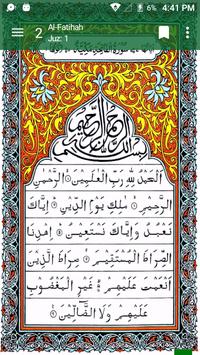 4:41 PM
2
Al-Fatihah
Juz: 1
بِسْمِ اللّٰهِ الرَّحْمٰنِ الرَّحِيْمِ
اَلْحَمْدُ لِلّٰهِ رَبِّ الْعٰلَمِيْنَ ۝ الرَّحْمٰنِ
الرَّحِيْمِ ۝ مٰلِكِ يَوْمِ الدِّيْنِ ۝ اِيَّاكَ
نَعْبُدُ وَاِيَّاكَ نَسْتَعِيْنُ ۝ اِهْدِنَا
الصِّرَاطَ الْمُسْتَقِيْمَ ۝ صِرَاطَ الَّذِيْنَ
اَنْعَمْتَ عَلَيْهِمْ ۝ غَيْرِ الْمَغْضُوْبِ
عَلَيْهِمْ وَلَا الضَّآلِّيْنَ ۝